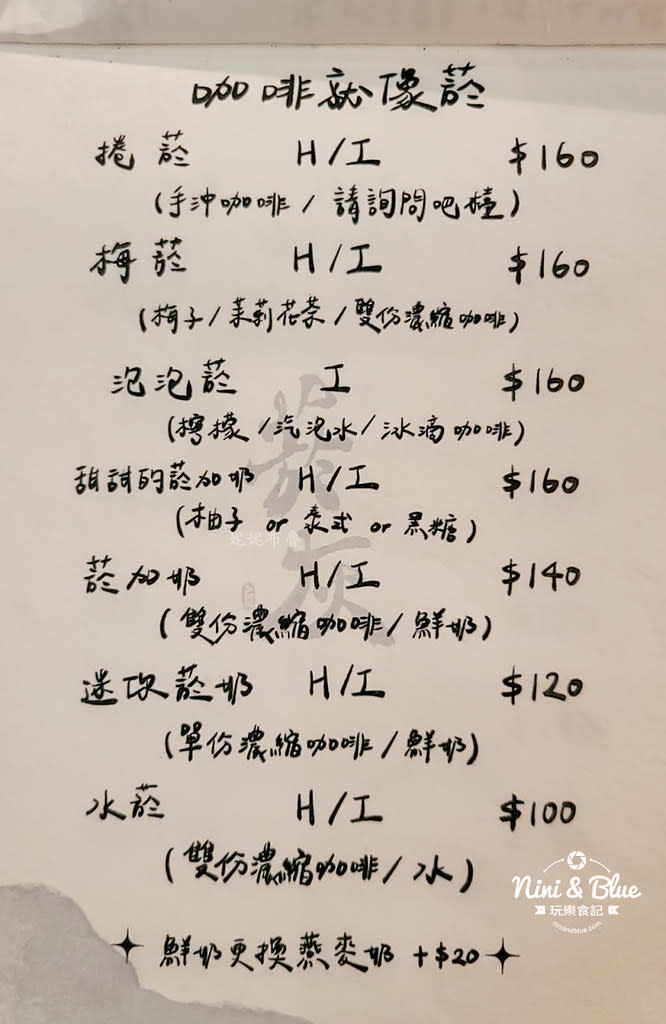 咖啡就像菸
捲菸 H/I $160
(手沖咖啡/請詢問吧檯)
梅菸 H/I $160
(梅子/茉莉花茶/雙份濃縮咖啡)
泡泡菸 I $160
(檸檬/汽泡水/冰滴咖啡)
甜甜的菸加奶 H/I $160
(柚子 or 泰式 or 黑糖)
菸加奶 H/I $140
(雙份濃縮咖啡/鮮奶)
迷你菸奶 H/I $120
(單份濃縮咖啡/鮮奶)
水菸 H/I $100
(雙份濃縮咖啡/水)
鮮奶更換燕麥奶 +$20
菸灰
妮妮布魯
Nini & Blue
玩樂食記
niniandblue.com